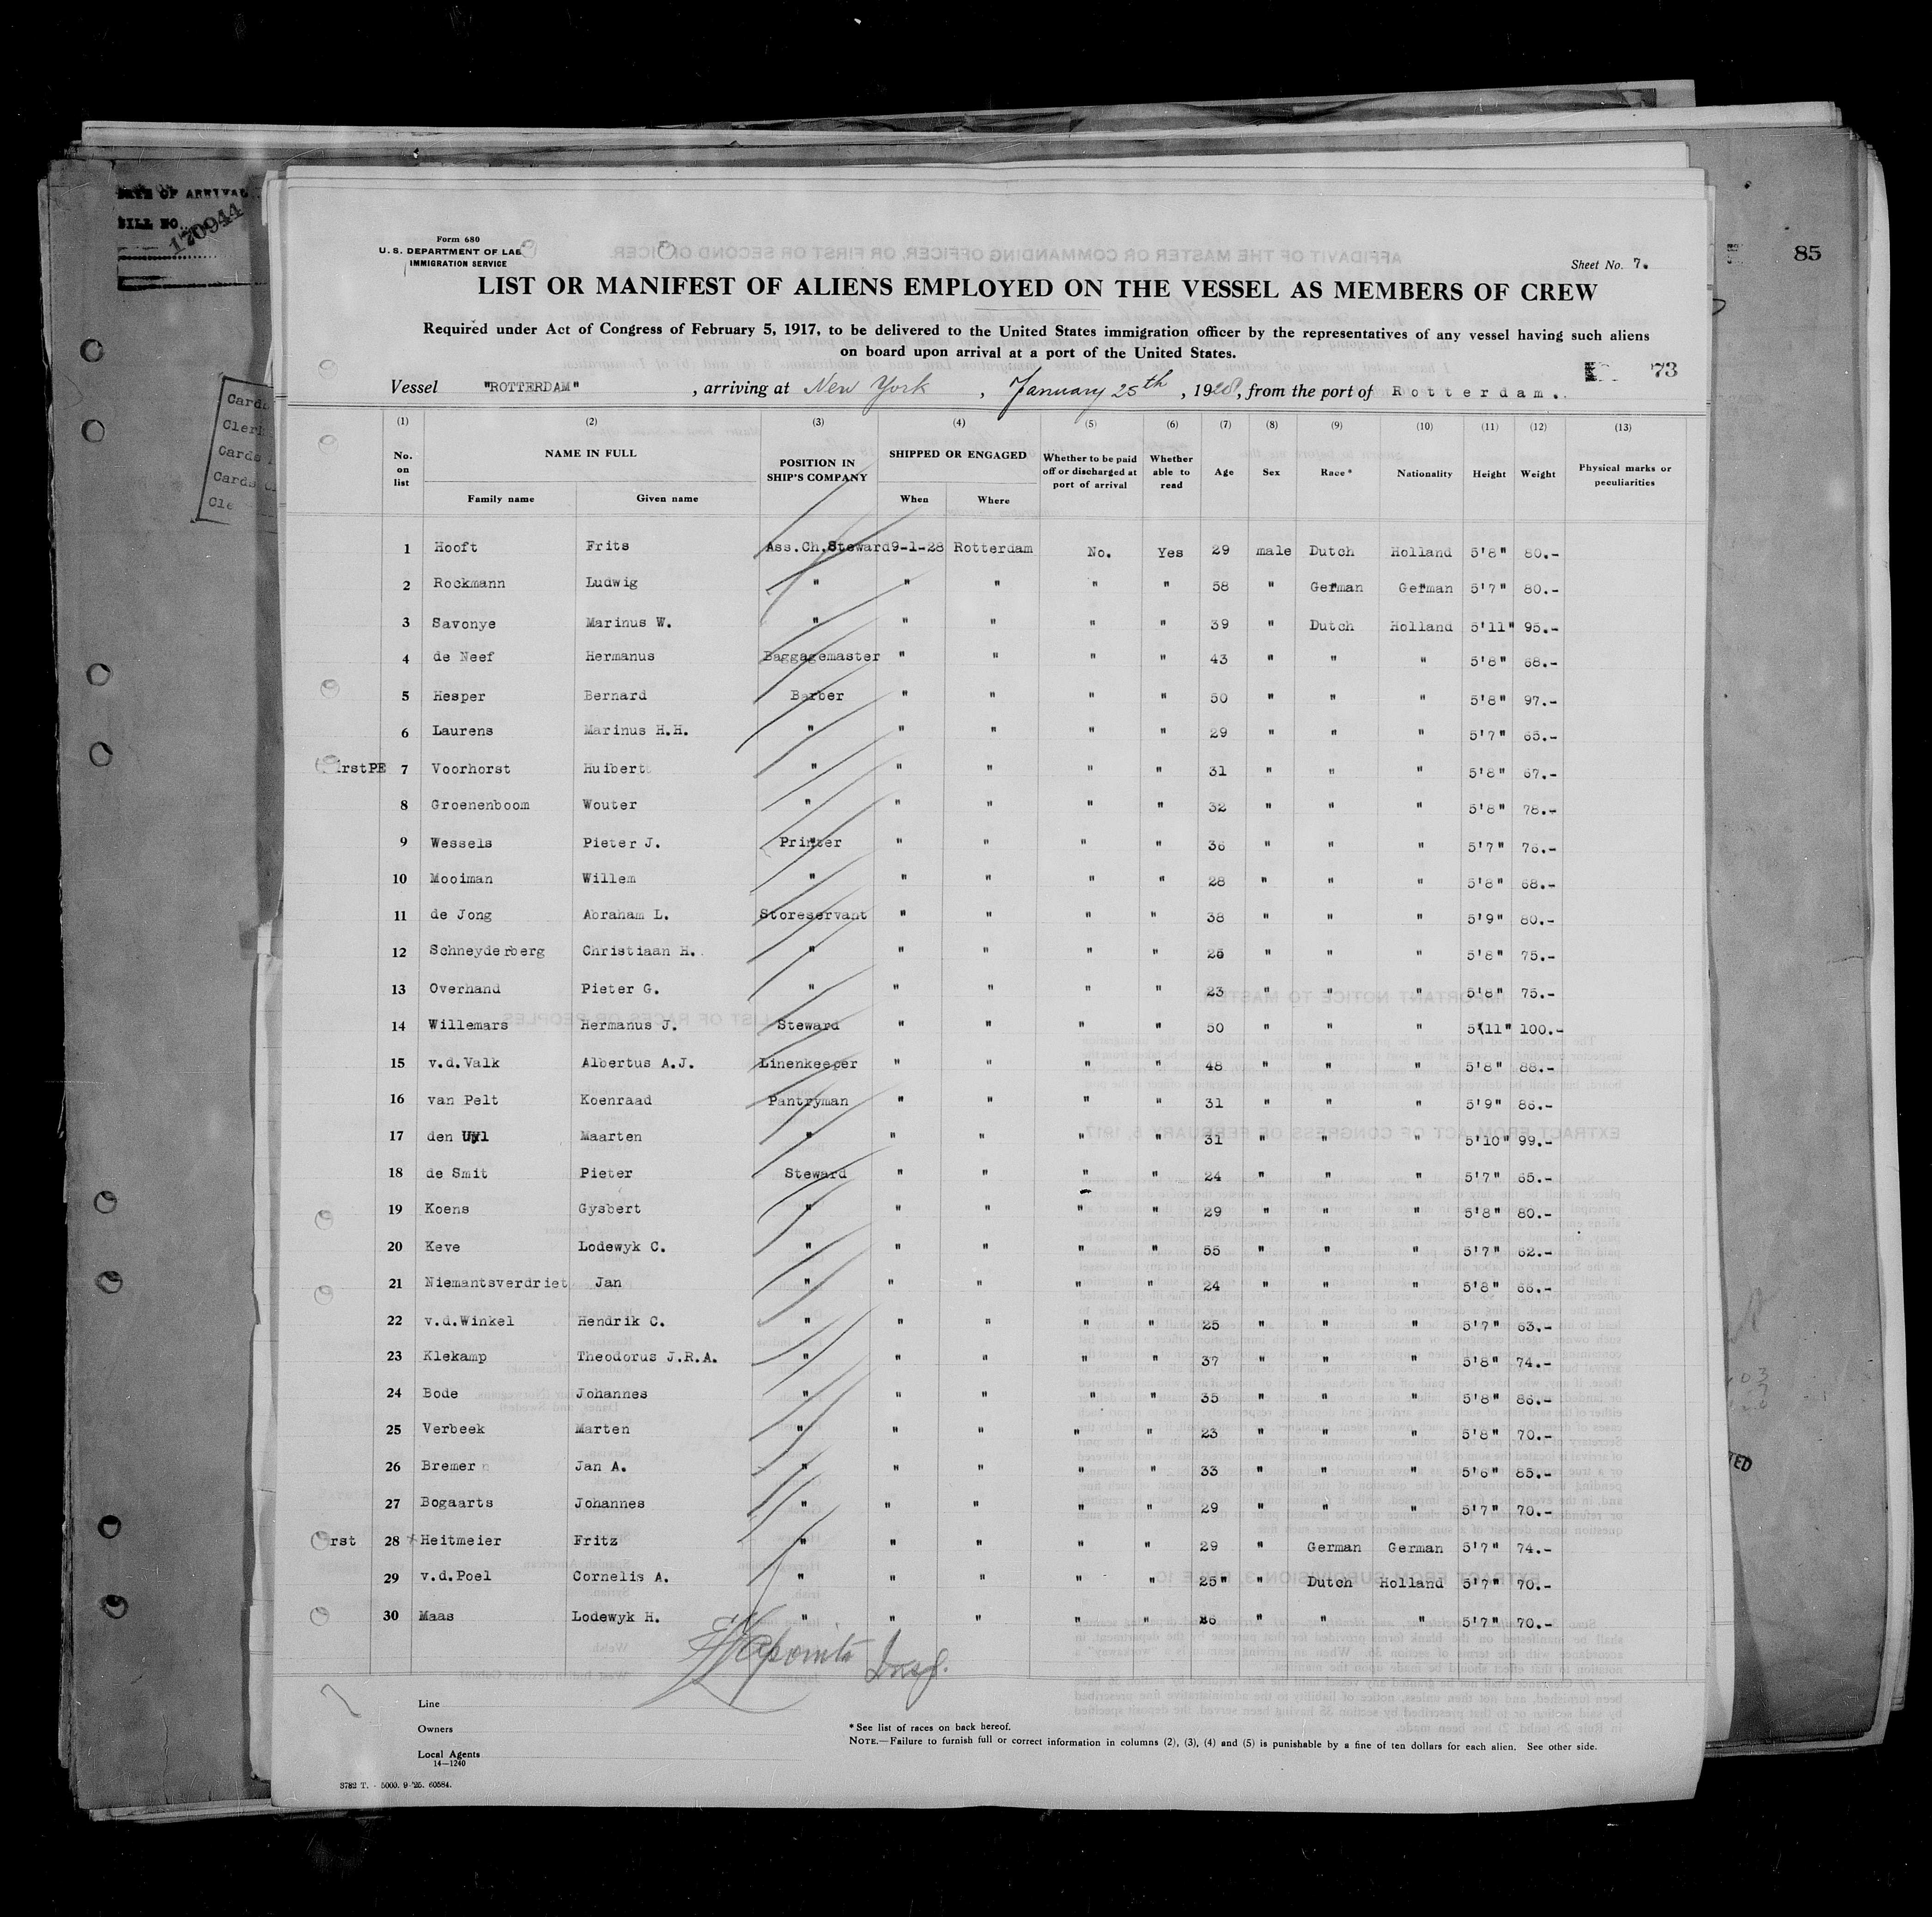 DATE OF ARRIVAL
BILL NO.
170944
85
Form 680
U. S. DEPARTMENT OF LAB
IMMIGRATION SERVICE
Sheet No. 7.
LIST OR MANIFEST OF ALIENS EMPLOYED ON THE VESSEL AS MEMBERS OF CREW
Required under Act of Congress of February 5, 1917, to be delivered to the United States immigration officer by the representatives of any vessel having such aliens
on board upon arrival at a port of the United States.
73
Vessel "ROTTERDAM", arriving at New York, January 25th, 1928, from the port of Rotterdam.
(1) (2) (3) (4) (5) (6) (7) (8) (9) (10) (11) (12) (13)
No. on list NAME IN FULL Family name Given name POSITION IN SHIP'S COMPANY SHIPPED OR ENGAGED When Where Whether to be paid off or discharged at port of arrival Whether able to read Age Sex Race* Nationality Height Weight Physical marks or peculiarities
1 Hooft Frits Ass.Ch.Steward 9-1-28 Rotterdam No. Yes 29 male Dutch Holland 5'8" 80.-
2 Rockmann Ludwig " " " " " 58 " German German 5'7" 80.-
3 Savonye Marinus W. " " " " " 39 " Dutch Holland 5'11" 95.-
4 de Neef Hermanus Baggagemaster " " " " 43 " " " 5'8" 68.-
5 Hesper Bernard Barber " " " " 50 " " " 5'8" 97.-
6 Laurens Marinus H.H. " " " " " 29 " " " 5'7" 65.-
rstPE 7 Voorhorst Huibert " " " " " 31 " " " 5'8" 67.-
8 Groenenboom Wouter " " " " " 32 " " " 5'8" 78.-
9 Wessels Pieter J. Printer " " " " 36 " " " 5'7" 76.-
10 Mooiman Willem " " " " " 28 " " " 5'8" 68.-
11 de Jong Abraham L. Storeservant " " " " 38 " " " 5'9" 80.-
12 Schneyderberg Christiaan H. " " " " " 26 " " " 5'8" 75.-
13 Overhand Pieter G. " " " " " 23 " " " 5'8" 75.-
14 Willemars Hermanus J. Steward " " " " 50 " " " 5'11" 100.-
15 v.d.Valk Albertus A.J. Linenkeeper " " " " 48 " " " 5'8" 88.-
16 van Pelt Koenraad Pantryman " " " " 31 " " " 5'9" 86.-
17 den Uyl Maarten " " " " " 31 " " " 5'10" 99.-
18 de Smit Pieter Steward " " " " 24 " " " 5'7" 65.-
19 Koens Gysbert " " " " " 29 " " " 5'8" 80.-
20 Keve Lodewyk C. " " " " " 55 " " " 5'7" 62.-
21 Niemantsverdriet Jan " " " " " 24 " " " 5'8" 66.-
22 v.d.Winkel Hendrik C. " " " " " 25 " " " 5'7" 63.-
23 Klekamp Theodorus J.R.A. " " " " " 37 " " " 5'8" 74.-
24 Bode Johannes " " " " " 35 " " " 5'8" 86.-
25 Verbeek Marten " " " " " 23 " " " 5'8" 70.-
26 Bremer Jan A. " " " " " 33 " " " 5'6" 85.-
27 Bogaarts Johannes " " " " " 29 " " " 5'7" 70.-
rst 28 Heitmeier Fritz " " " " " 29 " German German 5'7" 74.-
29 v.d.Poel Cornelis A. " " " " " 25" " Dutch Holland 5'7" 70.-
30 Maas Lodewyk H. " " " " " 26 " " " 5'7" 70.-
Lapointe Insp.
Line
Owners
Local Agents
14—1240
* See list of races on back hereof.
NOTE.—Failure to furnish full or correct information in columns (2), (3), (4) and (5) is punishable by a fine of ten dollars for each alien. See other side.
3782 T. - 5000. 9-'25. 60584.